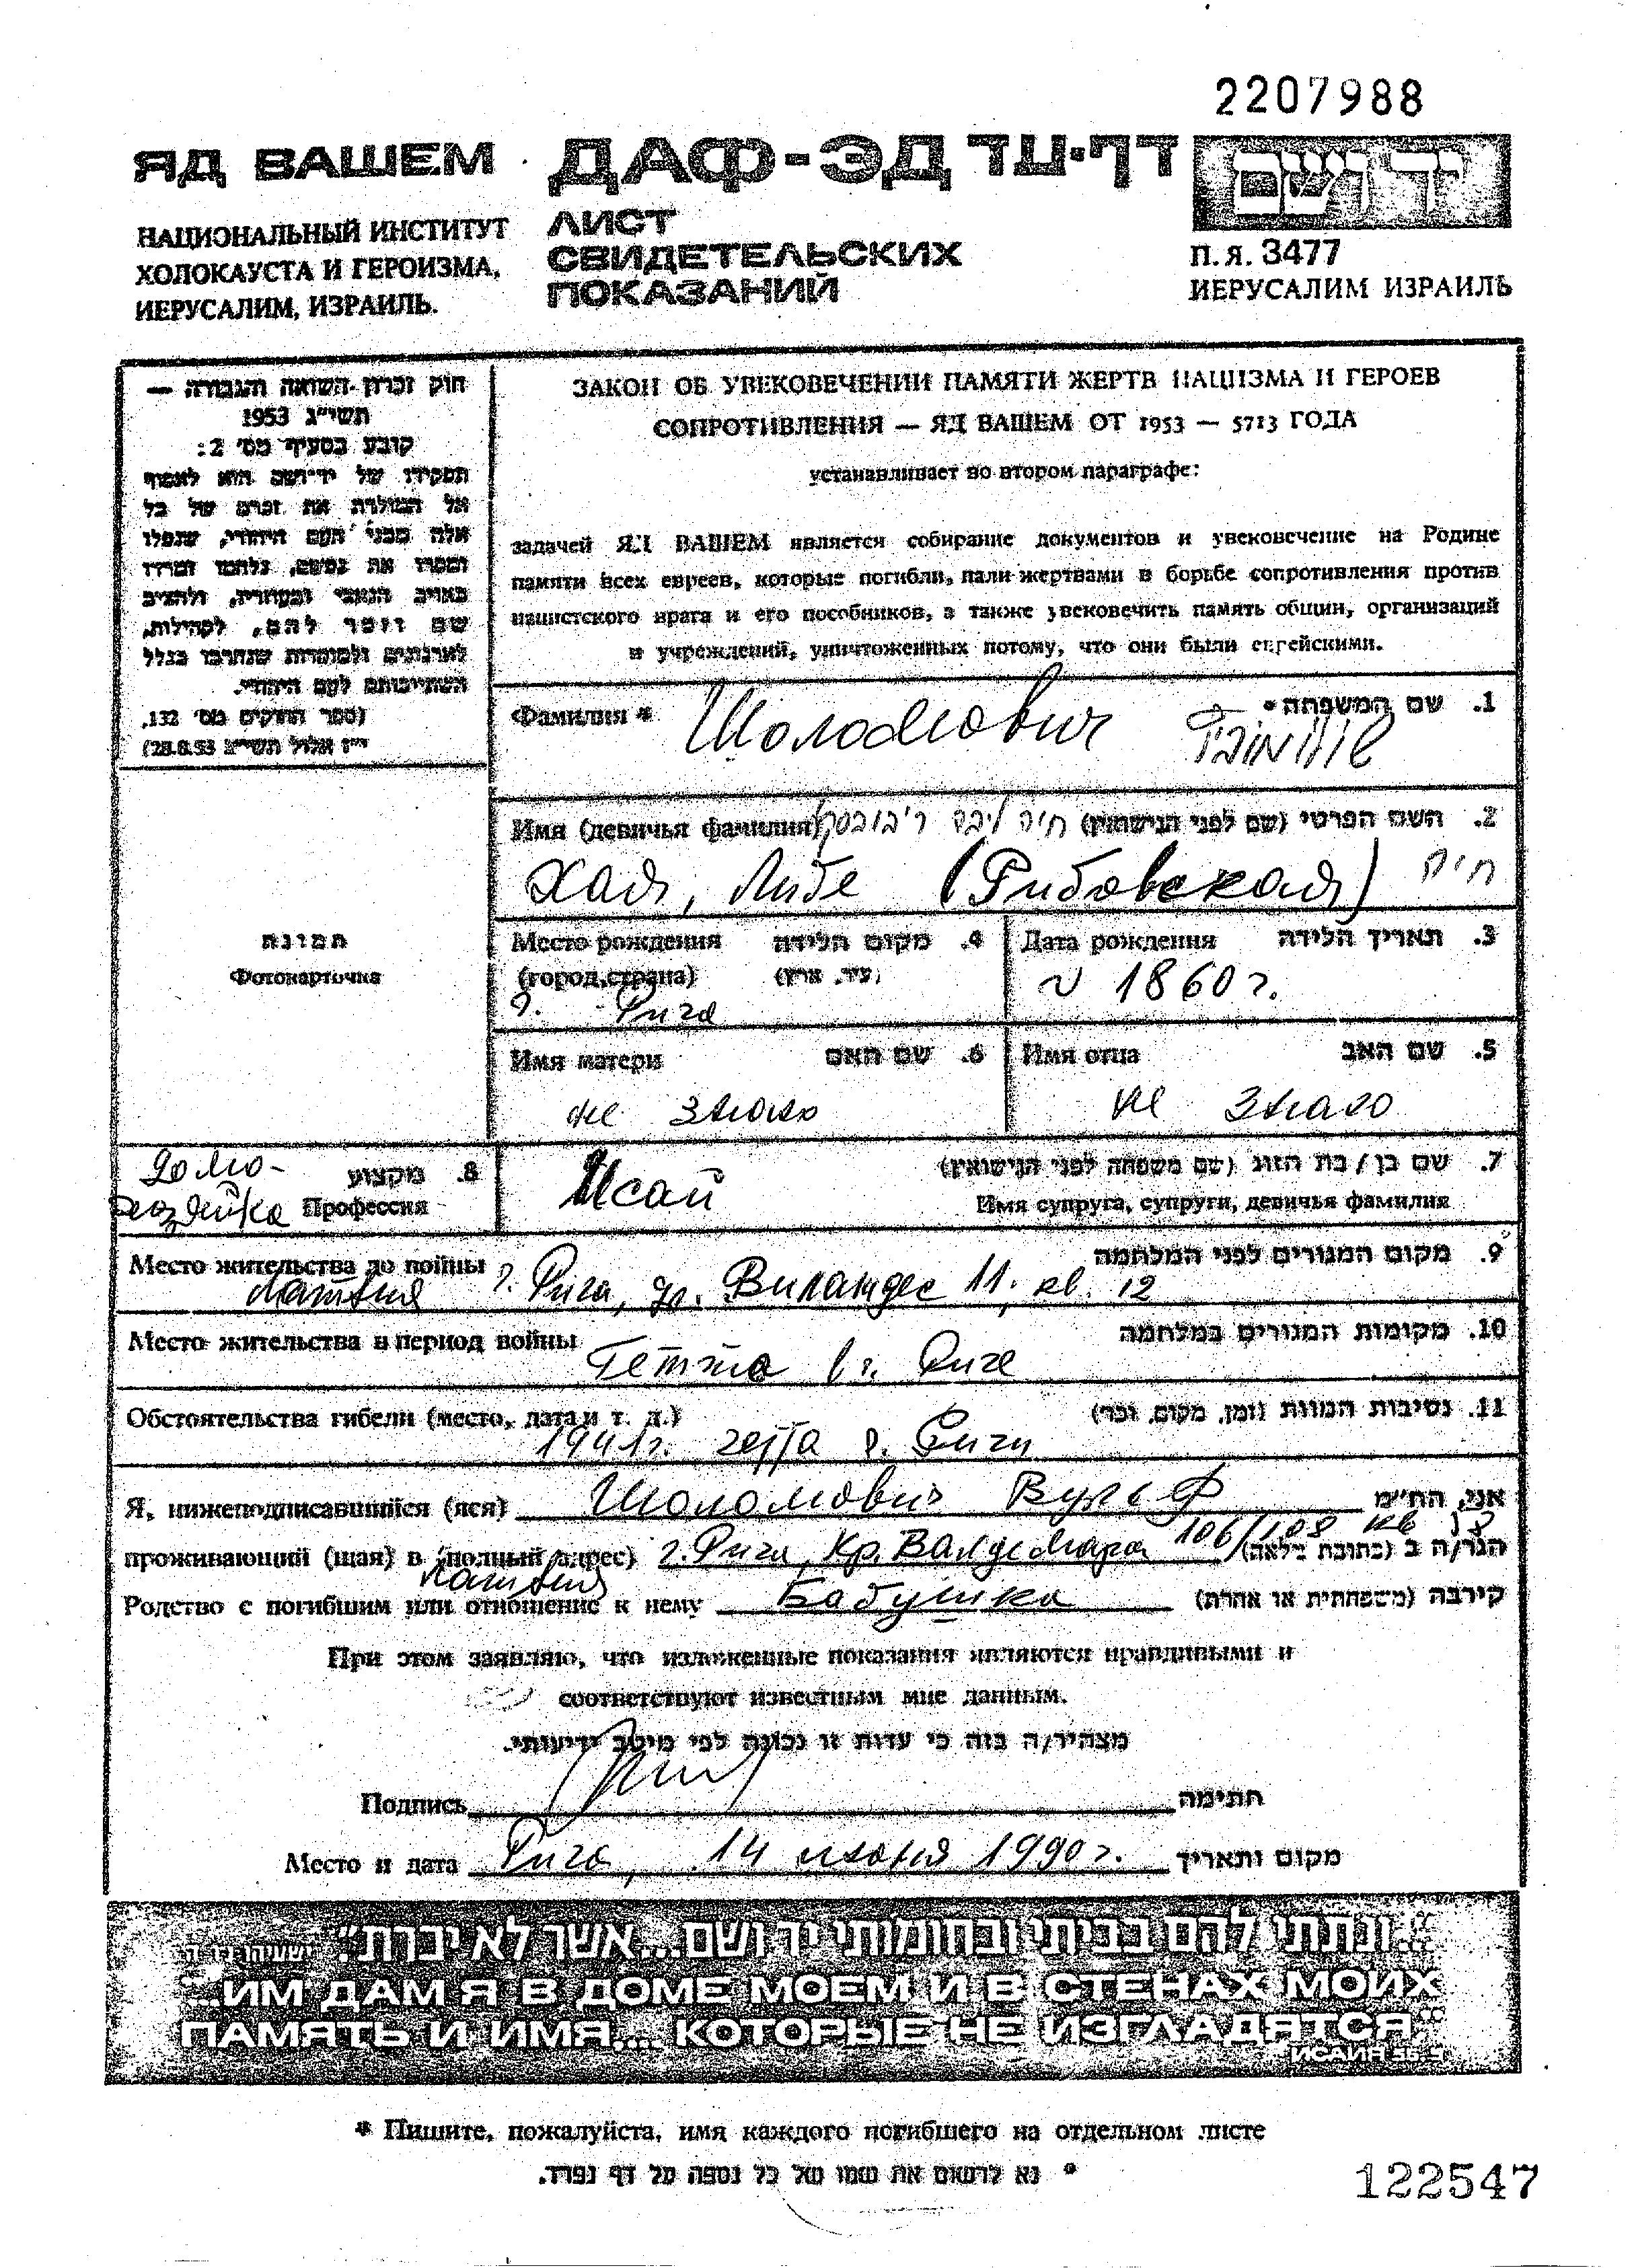 2207988
ЯД ВАШЕМ
ДАФ-ЭД דף-עד
יד ושם
НАЦИОНАЛЬНЫЙ ИНСТИТУТ
ХОЛОКАУСТА И ГЕРОИЗМА,
ИЕРУСАЛИМ, ИЗРАИЛЬ.
ЛИСТ
СВИДЕТЕЛЬСКИХ
ПОКАЗАНИЙ
П.Я. 3477
ИЕРУСАЛИМ ИЗРАИЛЬ
חוק זכרון השואה והגבורה —
תשי״ג 1953
קובע בסעיף מס׳ 2:
תפקידו של יד־ושם הוא לאסוף
אל המולדת את זכרם של כל
אלה מבני העם היהודי, שנפלו
ומסרו את נפשם, נלחמו ומרדו
באויב הנאצי ובעוזריו, ולהציב
שם וזכר להם, לקהילות,
לארגונים ולמוסדות שנחרבו בגלל
השתייכותם לעם היהודי.
(ספר החוקים מס׳ 132,
י״ז אלול תשי״ג 28.8.53)
ЗАКОН ОБ УВЕКОВЕЧЕНИИ ПАМЯТИ ЖЕРТВ НАЦИЗМА И ГЕРОЕВ
СОПРОТИВЛЕНИЯ — ЯД ВАШЕМ ОТ 1953 — 5713 ГОДА
устанавливает во втором параграфе:
задачей ЯД ВАШЕМ является собирание документов и увековечение на Родине
памяти всех евреев, которые погибли, пали жертвами в борьбе сопротивления против
нацистского врага и его пособников, а также увековечить память общин, организаций
и учреждений, уничтоженных потому, что они были еврейскими.
Фамилия * Шоломович 1. שם המשפחה *
Имя (девичья фамилия) 2. השם הפרטי (שם לפני הנישואין) חיה ליבה ריבובסקי
Хая, Либе (Рибовская) חיה
תמונה
Фотокарточка
Место рождения 4. מקום הלידה
(город, страна) (עיר, ארץ)
г. Рига
3. תאריך הלידה Дата рождения
~ 1860 г.
Имя матери 6. שם האם
не знаю
Имя отца 5. שם האב
не знаю
8. מקצוע
Профессия домохозяйка
7. שם בן/בת הזוג (שם משפחה לפני הנישואין)
Исай
Имя супруга, супруги, девичья фамилия
Место жительства до войны 9. מקום המגורים לפני המלחמה
Латвия г. Рига, ул. Виландес 11, кв. 12
Место жительства в период войны 10. מקומות המגורים במלחמה
Гетто в г. Риге
Обстоятельства гибели (место, дата и т. д.) 11. נסיבות המוות (זמן, מקום, וכו׳)
1941 г. гетто г. Риги
Я, нижеподписавшийся (яся) Шоломович Вульф אני, הח״מ
проживающий (щая) в (полный адрес) г. Рига, Кр. Валдемара 106/108 кв הגר/ה ב (כתובת מלאה)
Латвия
Родство с погибшим или отношение к нему Бабушка קירבה (משפחתית או אחרת)
При этом заявляю, что изложенные показания являются правдивыми и
соответствуют известным мне данным.
מצהיר/ה בזה כי עדות זו נכונה לפי מיטב ידיעותי.
Подпись חתימה
Место и дата Рига, 14 июня 1990 г. מקום ותאריך
"...ונתתי להם בביתי ובחומותי יד ושם...אשר לא יכרת" ישעיהו נו ה
"...ИМ ДАМ Я В ДОМЕ МОЕМ И В СТЕНАХ МОИХ
ПАМЯТЬ И ИМЯ... КОТОРЫЕ НЕ ИЗГЛАДЯТСЯ"
ИСАИЯ 56. 5
* Пишите, пожалуйста, имя каждого погибшего на отдельном листе
* נא לרשום את שמו של כל נספה על דף נפרד.
122547